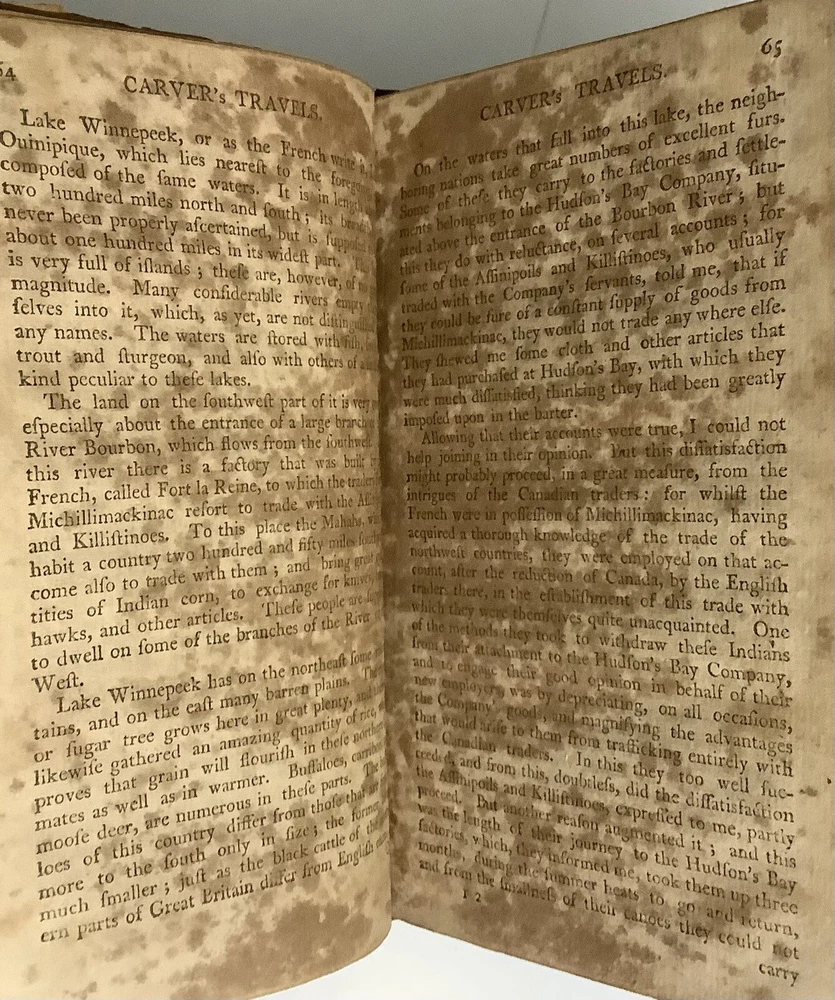 64
CARVER's TRAVELS.
Lake Winnepeek, or as the French write
Ouinipique, which lies neareſt to the
compoſed of the ſame waters. It is in length
two hundred miles north and ſouth; its
never been properly aſcertained, but is
about one hundred miles in its wideſt part.
is very full of iſlands; theſe are, however, of
magnitude. Many conſiderable rivers empty
ſelves into it, which, as yet, are not
any names. The waters are ſtored with fiſh,
trout and ſturgeon, and alſo with others of a
kind peculiar to theſe lakes.
The land on the ſouthweſt part of it is very
eſpecially about the entrance of a large
River Bourbon, which flows from the ſouthweſt.
this river there is a factory that was built
French, called Fort la Reine, to which the
Michillimackinac reſort to trade with the
and Killiſtinoes. To this place the Mahahs,
habit a country two hundred and fifty miles
come alſo to trade with them; and bring great
tities of Indian corn, to exchange for
hawks, and other articles. Theſe people are
to dwell on ſome of the branches of the River
Weſt.
Lake Winnepeek has on the northeaſt ſome
tains, and on the eaſt many barren plains. The
or ſugar tree grows here in great plenty, and
likewiſe gathered an amazing quantity of rice,
proves that grain will flouriſh in theſe
mates as well as in warmer. Buffaloes,
mooſe deer, are numerous in theſe parts. The
loes of this country differ from thoſe that are
more to the ſouth only in ſize; the former
much ſmaller; juſt as the black cattle of the
ern parts of Great Britain differ from Engliſh
65
CARVER's TRAVELS.
On the waters that fall into this lake, the neigh-
boring nations take great numbers of excellent furs.
Some of theſe they carry to the factories and ſettle-
ments belonging to the Hudſon's Bay Company, ſitu-
ated above the entrance of the Bourbon River; but
this they do with reluctance, on ſeveral accounts; for
ſome of the Aſſinipoils and Killiſtinoes, who uſually
traded with the Company's ſervants, told me, that if
they could be ſure of a conſtant ſupply of goods from
Michillimackinac, they would not trade any where elſe.
They ſhewed me ſome cloth and other articles that
they had purchaſed at Hudſon's Bay, with which they
were much diſſatisfied, thinking they had been greatly
impoſed upon in the barter.
Allowing that their accounts were true, I could not
help joining in their opinion. But this diſſatisfaction
might probably proceed, in a great meaſure, from the
intrigues of the Canadian traders: for whilſt the
French were in poſſeſſion of Michillimackinac, having
acquired a thorough knowledge of the trade of the
northweſt countries, they were employed on that ac-
count, after the reduction of Canada, by the Engliſh
traders there, in the eſtabliſhment of this trade with
which they were themſelves quite unacquainted. One
of the methods they took to withdraw theſe Indians
from their attachment to the Hudſon's Bay Company,
and to engage their good opinion in behalf of their
new employers, was by depreciating, on all occaſions,
the Company's goods, and magnifying the advantages
that would ariſe to them from trafficking entirely with
the Canadian traders. In this they too well ſuc-
ceeded, and from this, doubtleſs, did the diſſatisfaction
the Aſſinipoils and Killiſtinoes, expreſſed to me, partly
proceed. But another reaſon augmented it; and this
was the length of their journey to the Hudſon's Bay
factories, which, they informed me, took them up three
months, during the ſummer heats to go and return,
and from the ſmallneſs of their canoes they could not
I 2
carry